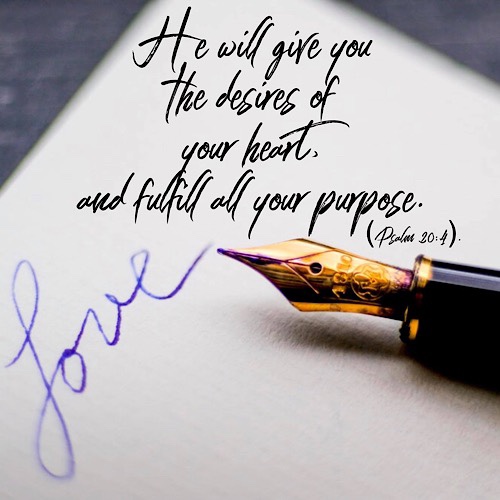 He will give you
the desires of
your heart,
and fulfill all your purpose.
(Psalm 20:4).
love